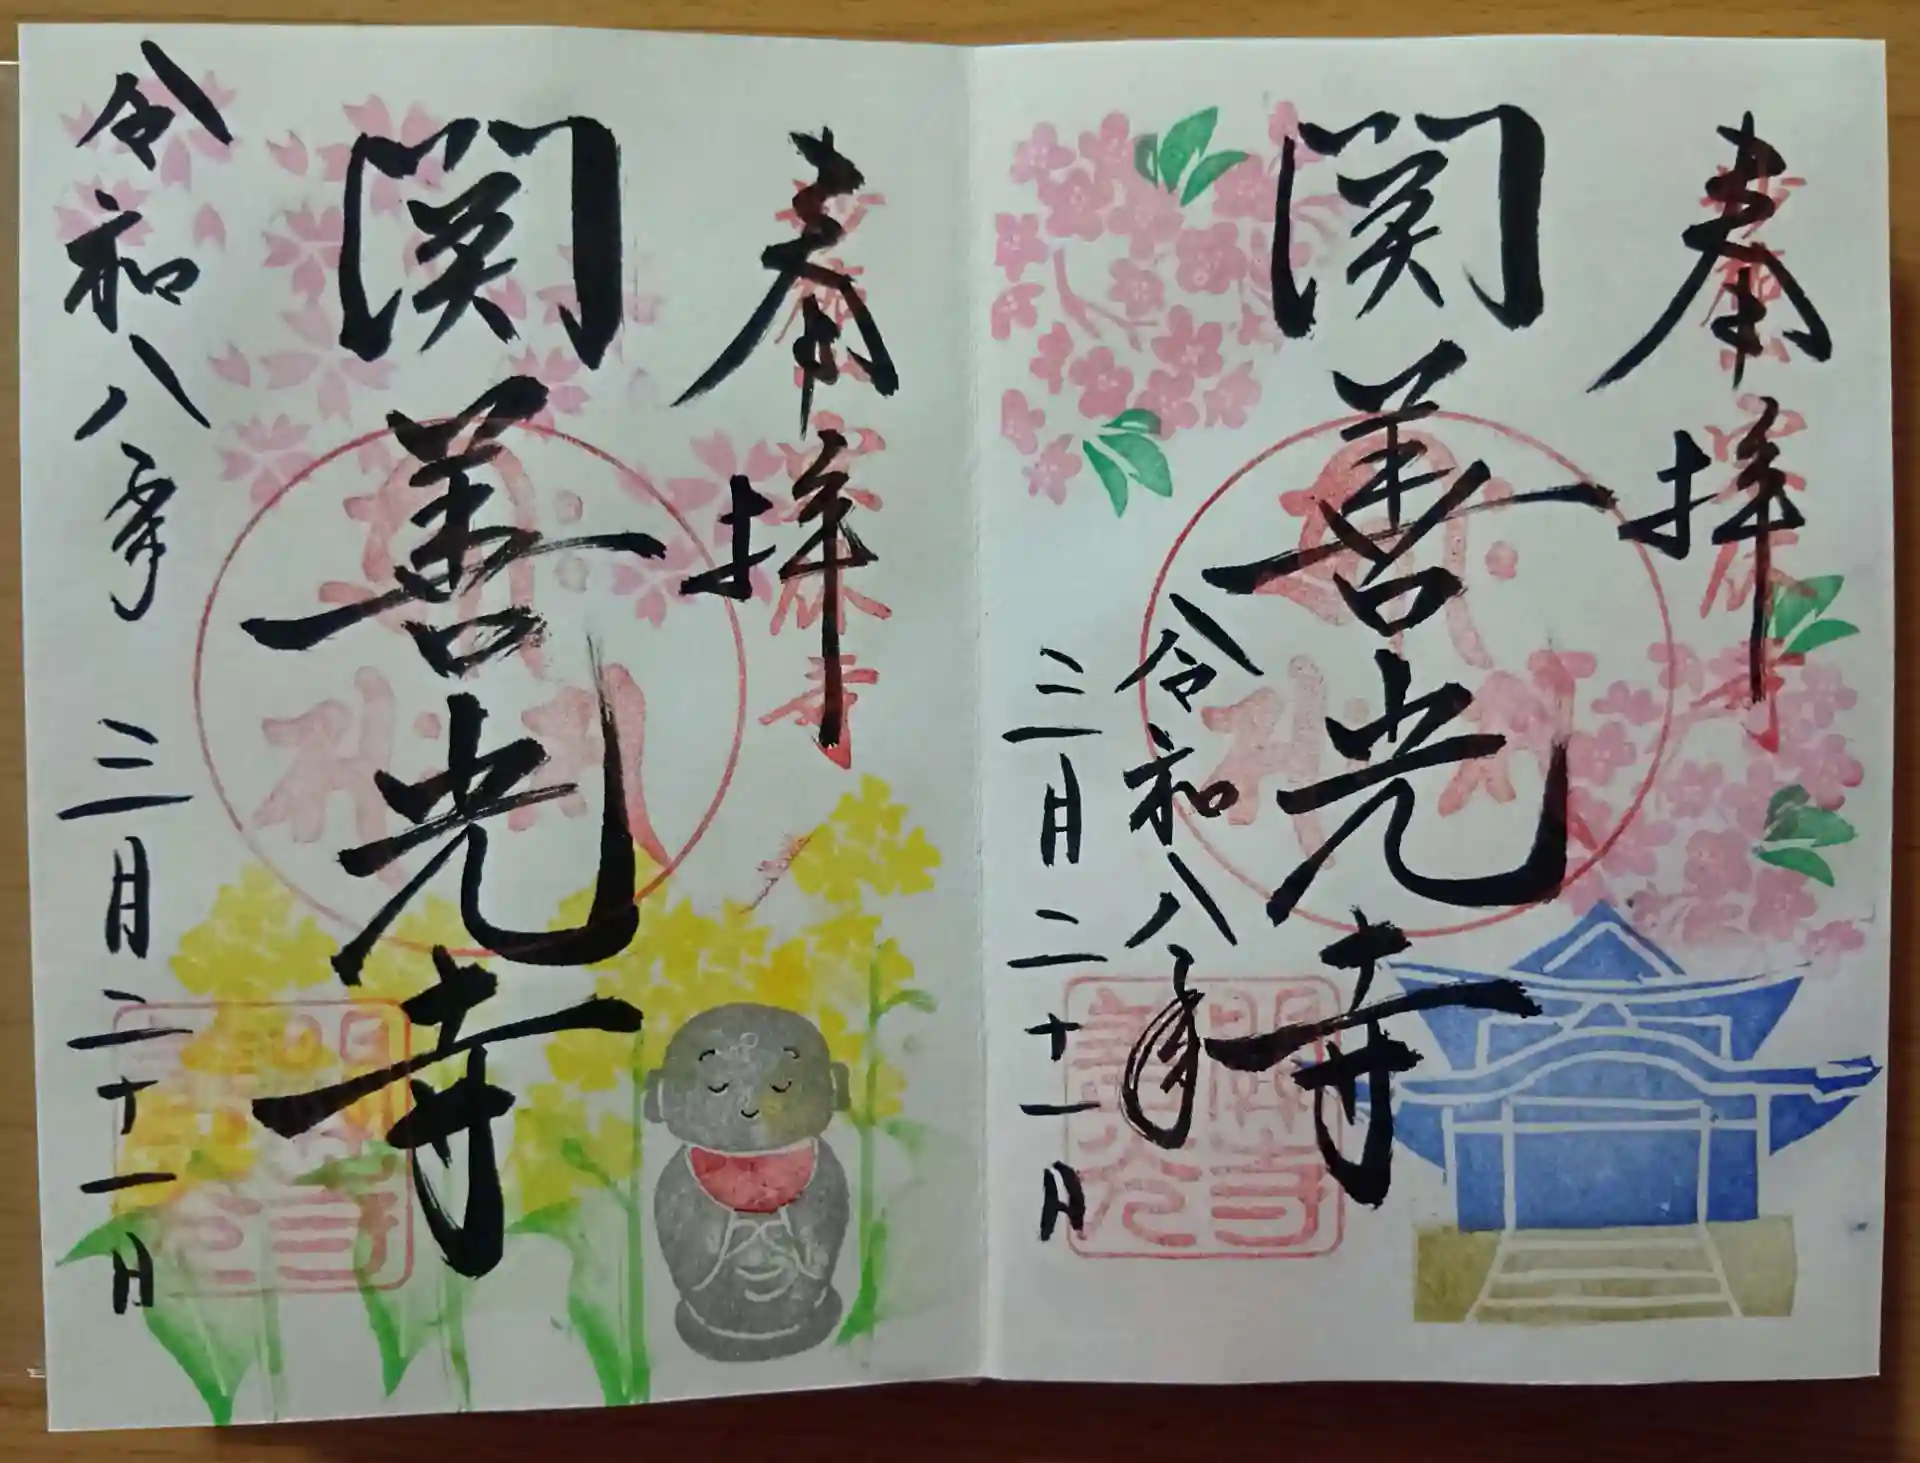 奉拝
関善光寺
令和八年
三月二十一日
奉拝
関善光寺
令和八年
三月二十一日